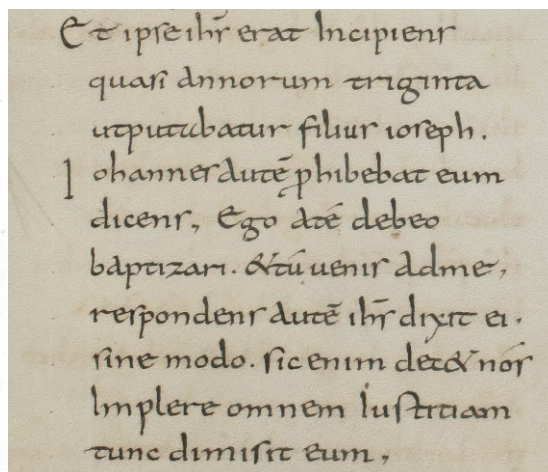 Et ipse ihs̄ erat Incipiens
quasi annorum triginta
utputabatur filius ioseph.
Iohannes autē ꝓhibebat eum
dicens, Ego a té debeo
baptizari. & tú uenis ad me,
respondens autē ihs̄ dixit ei.
sine modo. sic enim dec& nós
Implere omnem Iustitiam
tunc dimisit eum,